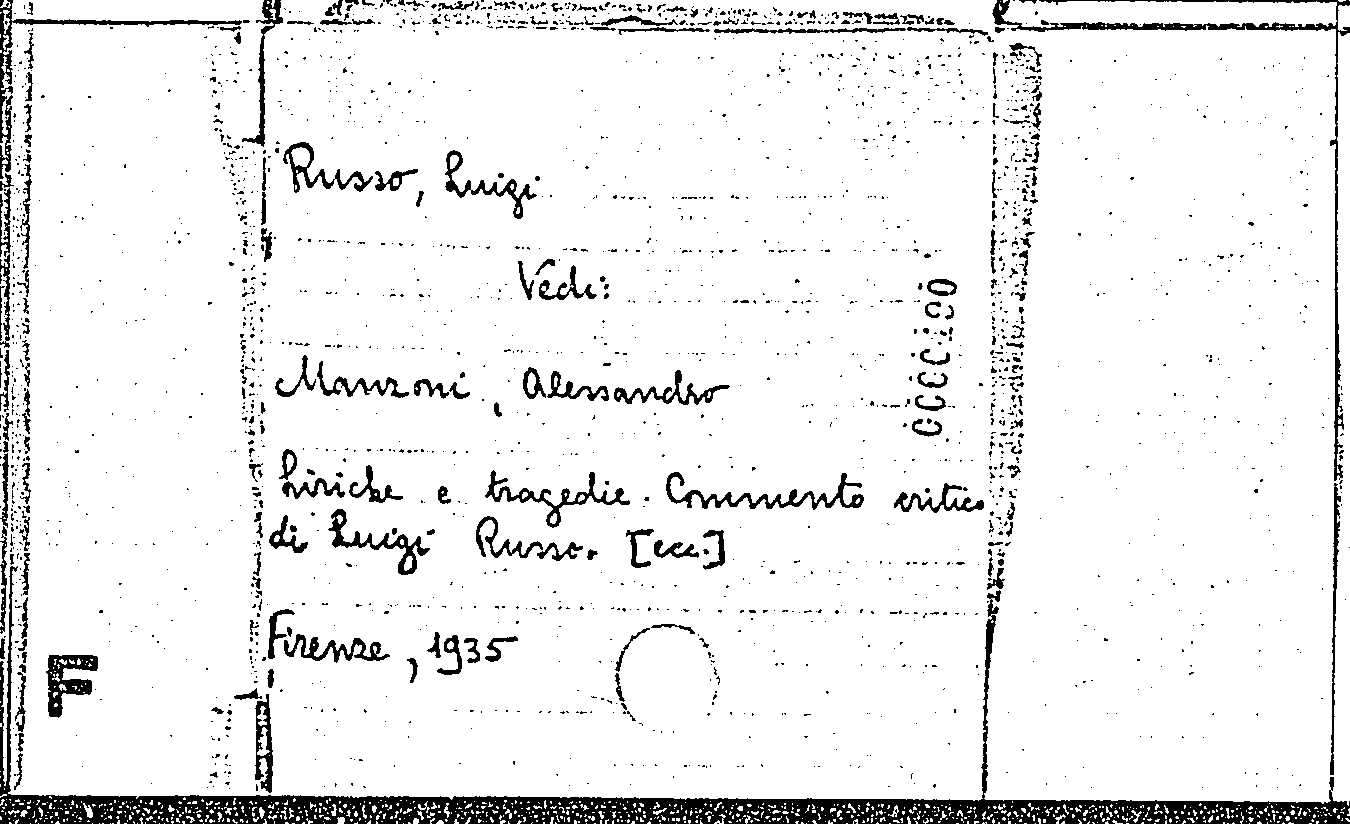 Russo, Luigi
Vedi:
Manzoni, Alessandro
Liriche e tragedie. Commento critico
di Luigi Russo. [ecc.]
Firenze, 1935
F